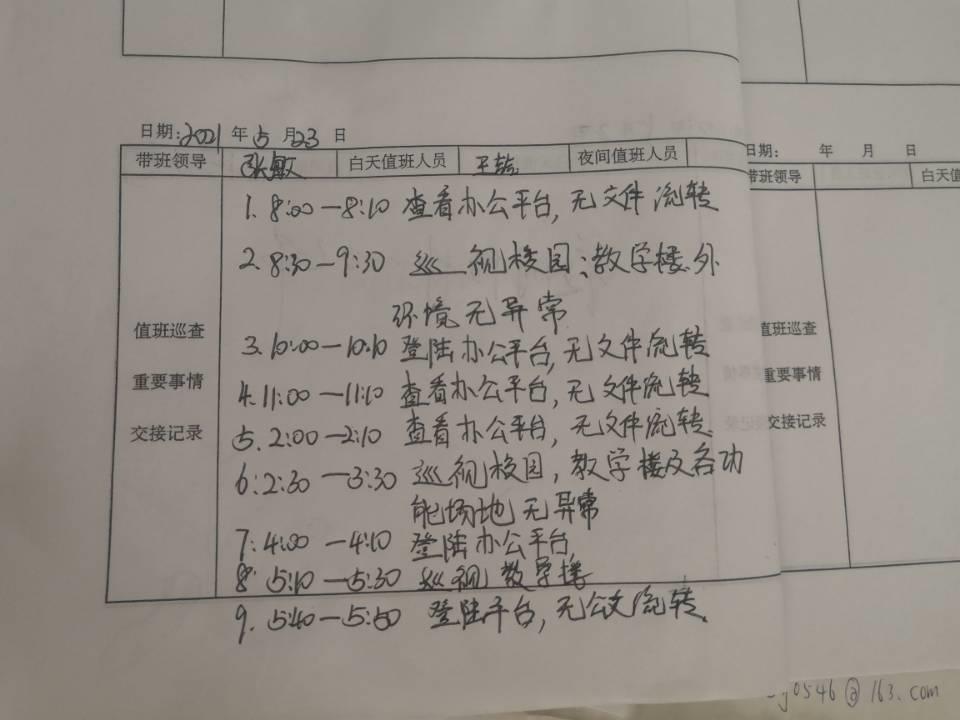 日期:2021 年 5 月 23 日
带班领导 张敏 白天值班人员 王 夜间值班人员
值班巡查
重要事情
交接记录
1. 8:00—8:10 查看办公平台,无文件流转
2. 8:30—9:30 巡视校园:教学楼外
环境无异常
3. 10:00—10:10 登陆办公平台,无文件流转
4. 11:00—11:10 查看办公平台,无文件流转
5. 2:00—2:10 查看办公平台,无文件流转.
6: 2:30—3:30 巡视校园,教学楼及各功
能场地无异常
7: 4:00—4:10 登陆办公平台,
8: 5:10—5:30 巡视教学楼
9. 5:40—5:50 登陆平台,无公文流转.
日期: 年 月 日
带班领导 白天值
值班巡查
重要事情
交接记录
y0546@163.com